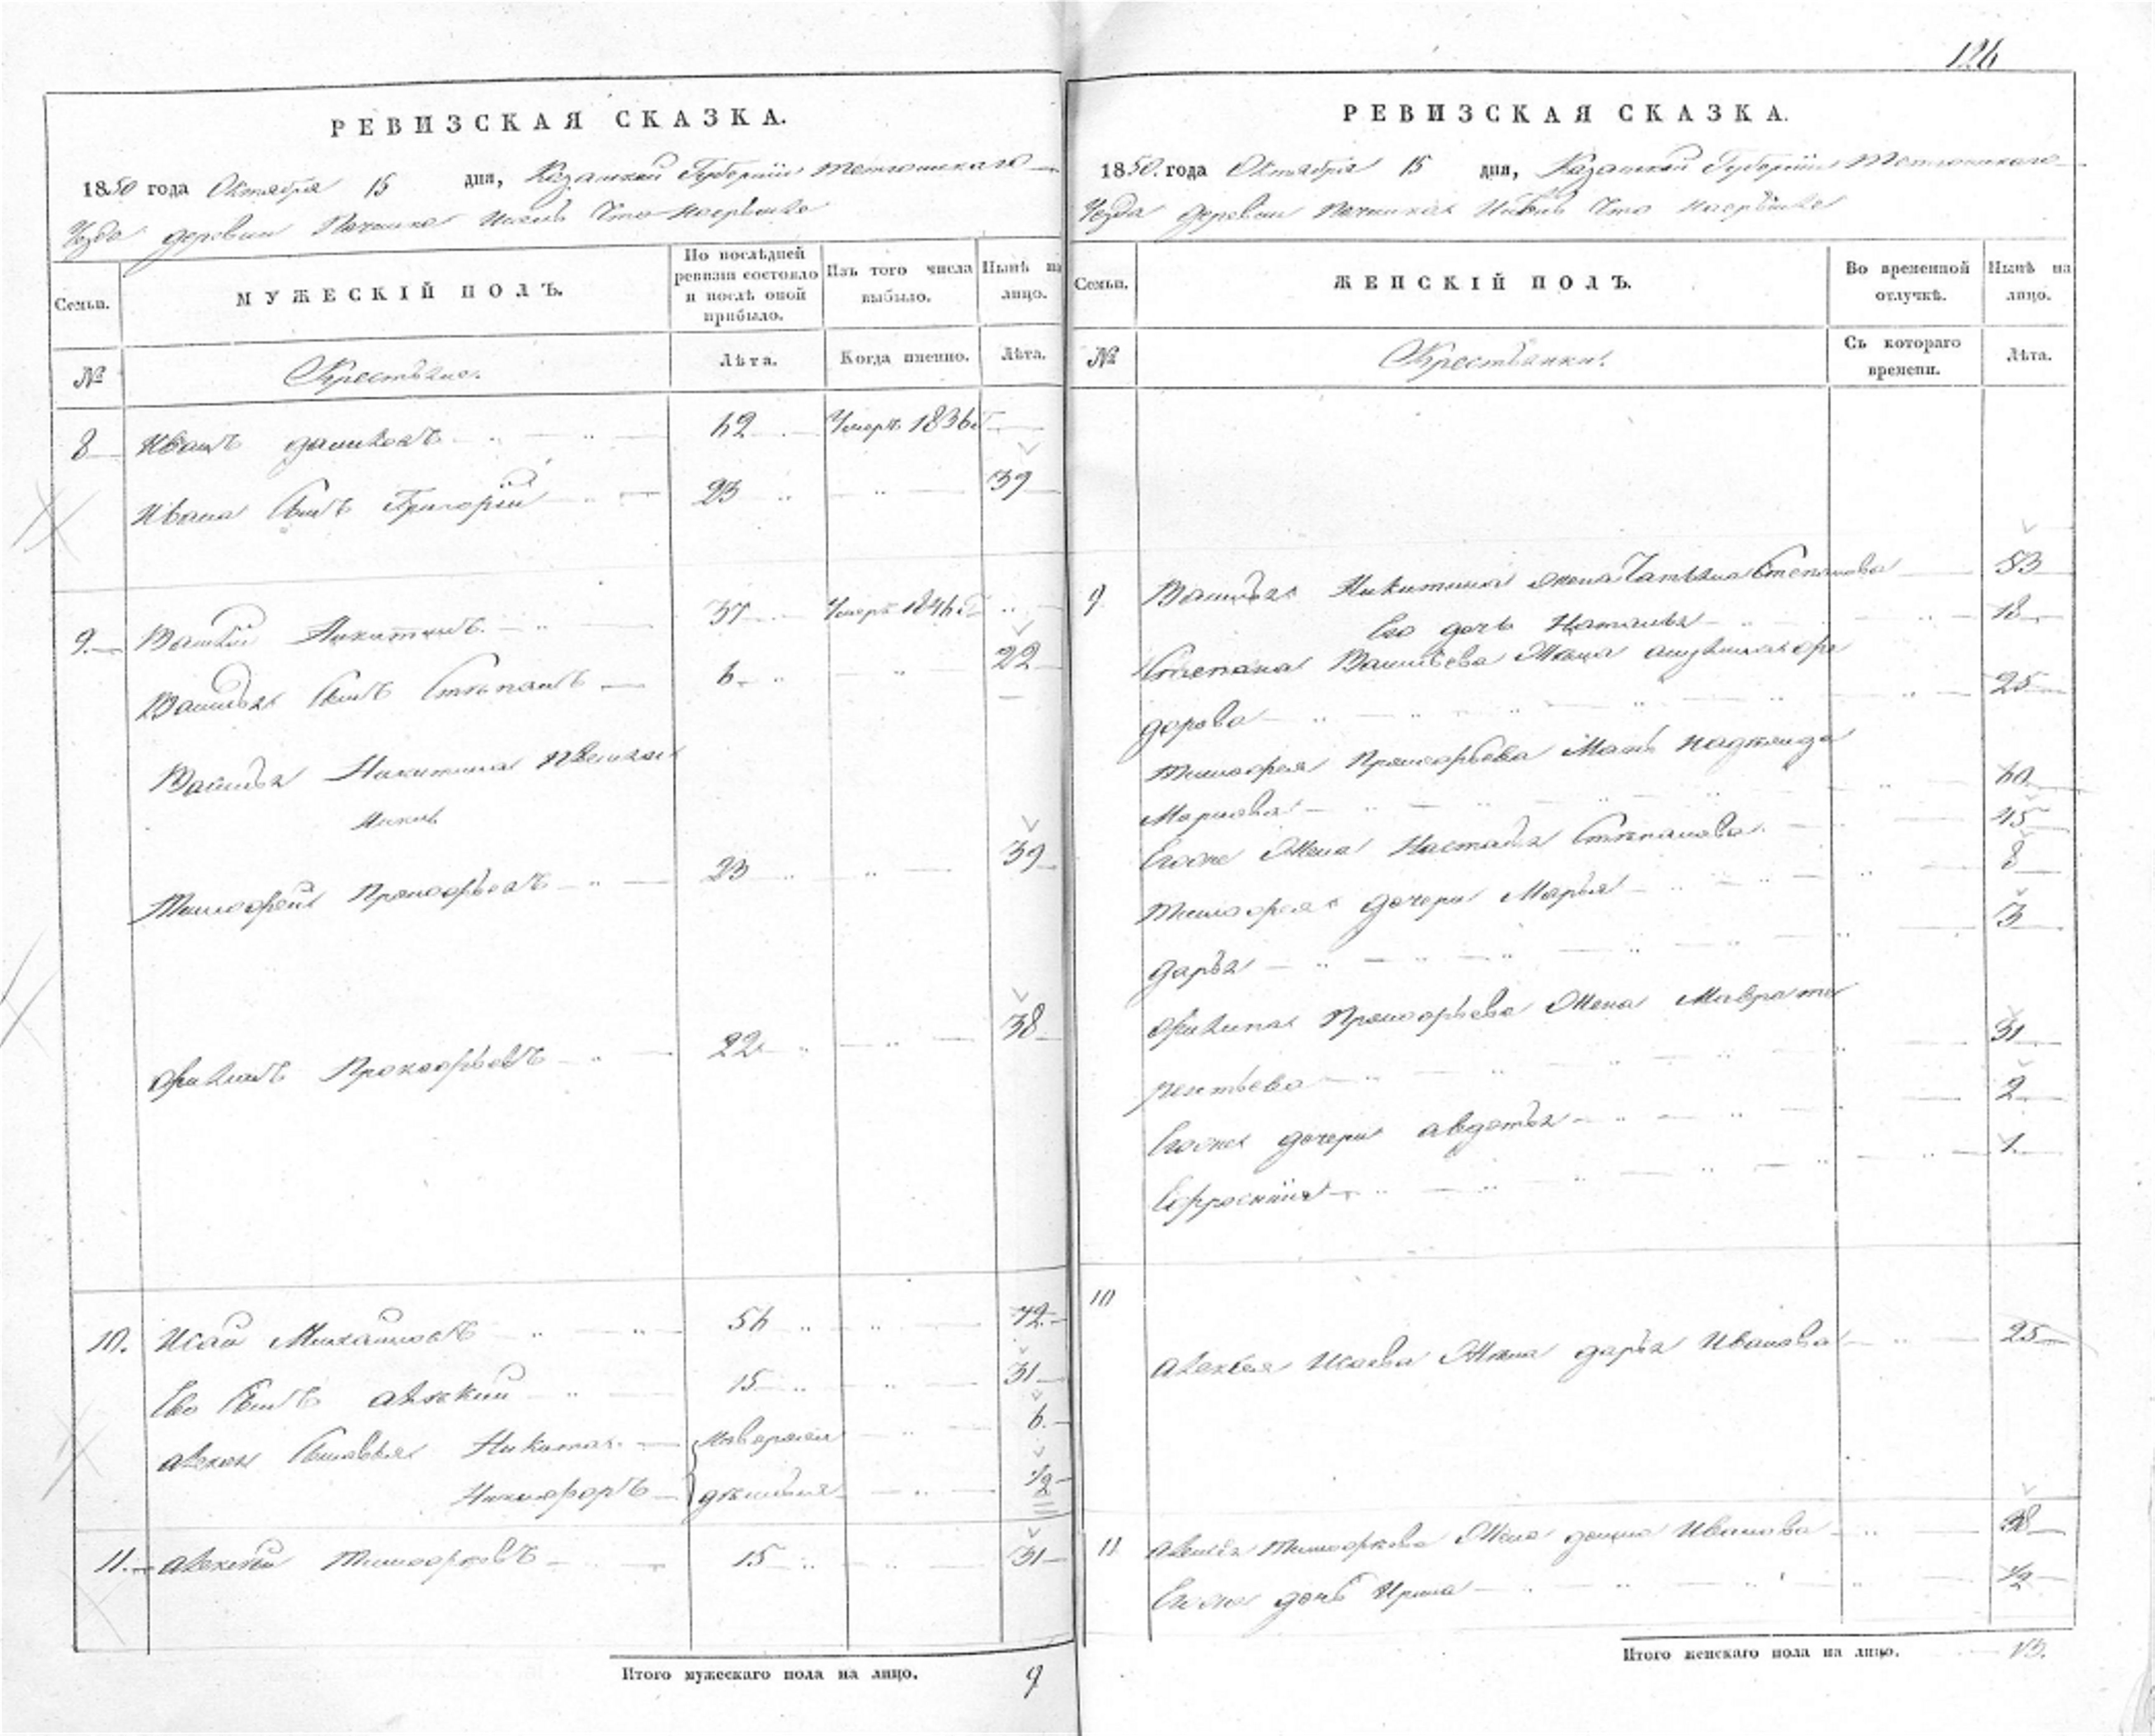 126
РЕВИЗСКАЯ СКАЗКА.
1850 года Октября 15 дня, Казанской Губернiи Тетюшскаго
Уезда деревни
Семьи.
МУЖЕСКIЙ ПОЛЪ.
По послѣдней ревизiи состояло и послѣ оной прибыло.
Изъ того числа выбыло.
Нынѣ на лицо.
№
Крестьяне.
Лѣта.
Когда именно.
Лѣта.
8 Иванъ Даниловъ 62 Умеръ 1836
Ивана Сынъ Григорiй 23 39
9. Василiй Никитинъ 37 Умеръ 1846
Василья Сынъ Степанъ 6 22
Василья Никитина племян
ники
Тимофей Прокофьевъ 23 39
Филипъ Прокофьевъ 22 38
10. Исай Михайловъ 56 72
Ево Сынъ Алексей 15 31
Алексея Сыновья Никита 6
Никифоръ 1/2
11. Алексей Тимофеевъ 15 31
Итого мужескаго пола на лицо. 9
РЕВИЗСКАЯ СКАЗКА.
1850 года Октября 15 дня, Казанской Губернiи Тетюшскаго
Уезда деревни
Семьи.
ЖЕНСКIЙ ПОЛЪ.
Во временной отлучкѣ.
Нынѣ на лицо.
№
Крестьянки.
Съ котораго времени.
Лѣта.
9 Василья Никитина жена Татьяна Степанова 53
Ево дочь Наталья 18
Степана Васильева Жена
дорова 25
Тимофея Прокофьева Мать
Маркова 60
Евоже Жена Настасья Степанова 45
Тимофея дочери Марья 8
Дарья 3
Филипа Прокофьева Жена Мавра те
рентьева 31
Евоже дочери Авдотья 2
Ефросинья 1
10
Алексея Исаева Жена Дарья Иванова 25
11 Тимофеева Жена Иванова
Евоже дочь Ирина 1/2
Итого женскаго пола на лицо. 13.